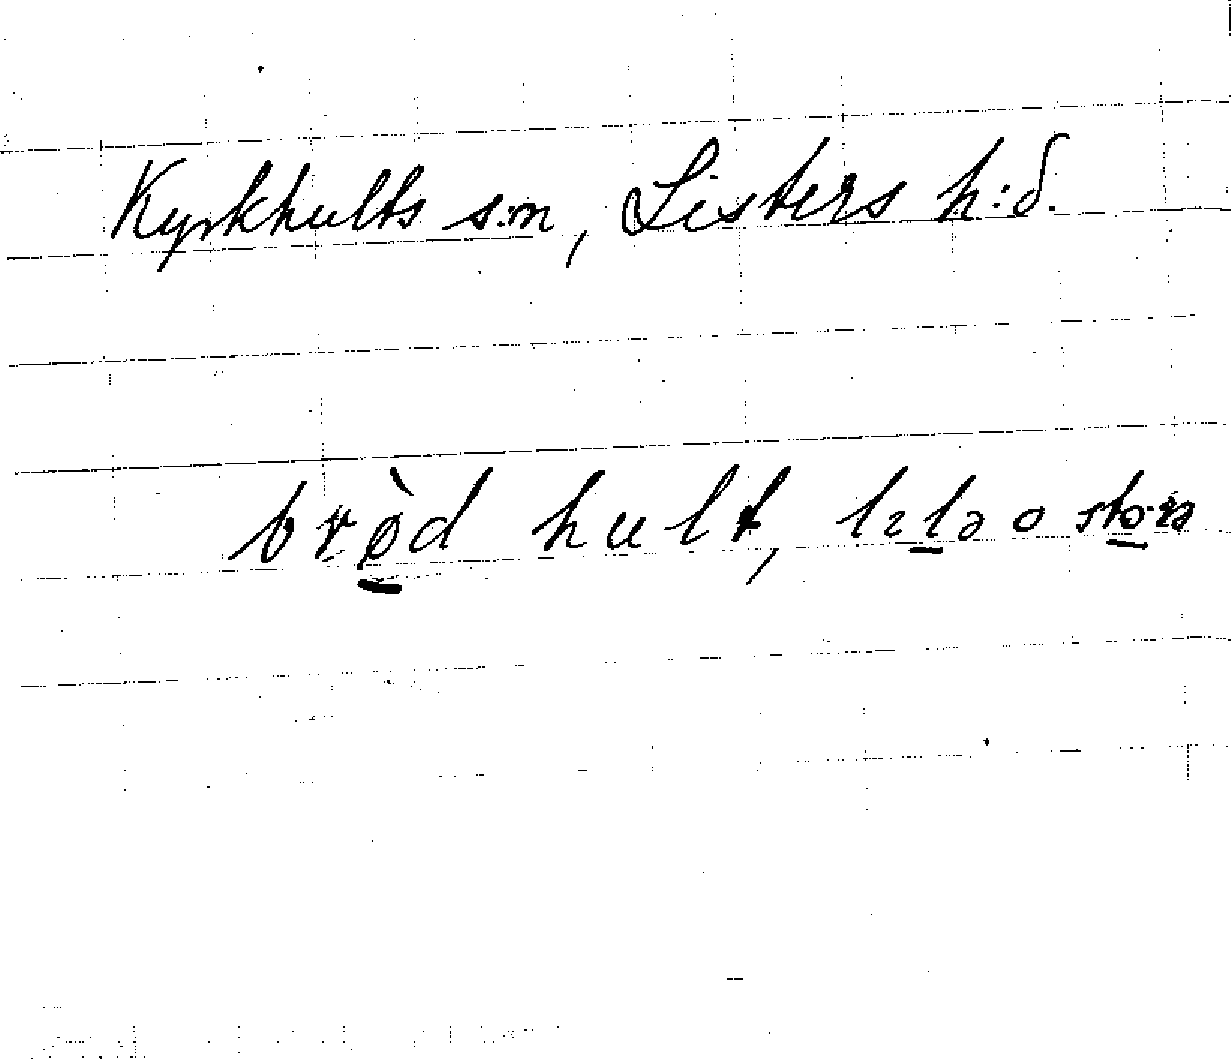 Kyrkhults s:n, Listers h:d.
brø̀d hult, lɩlə o sto·rə